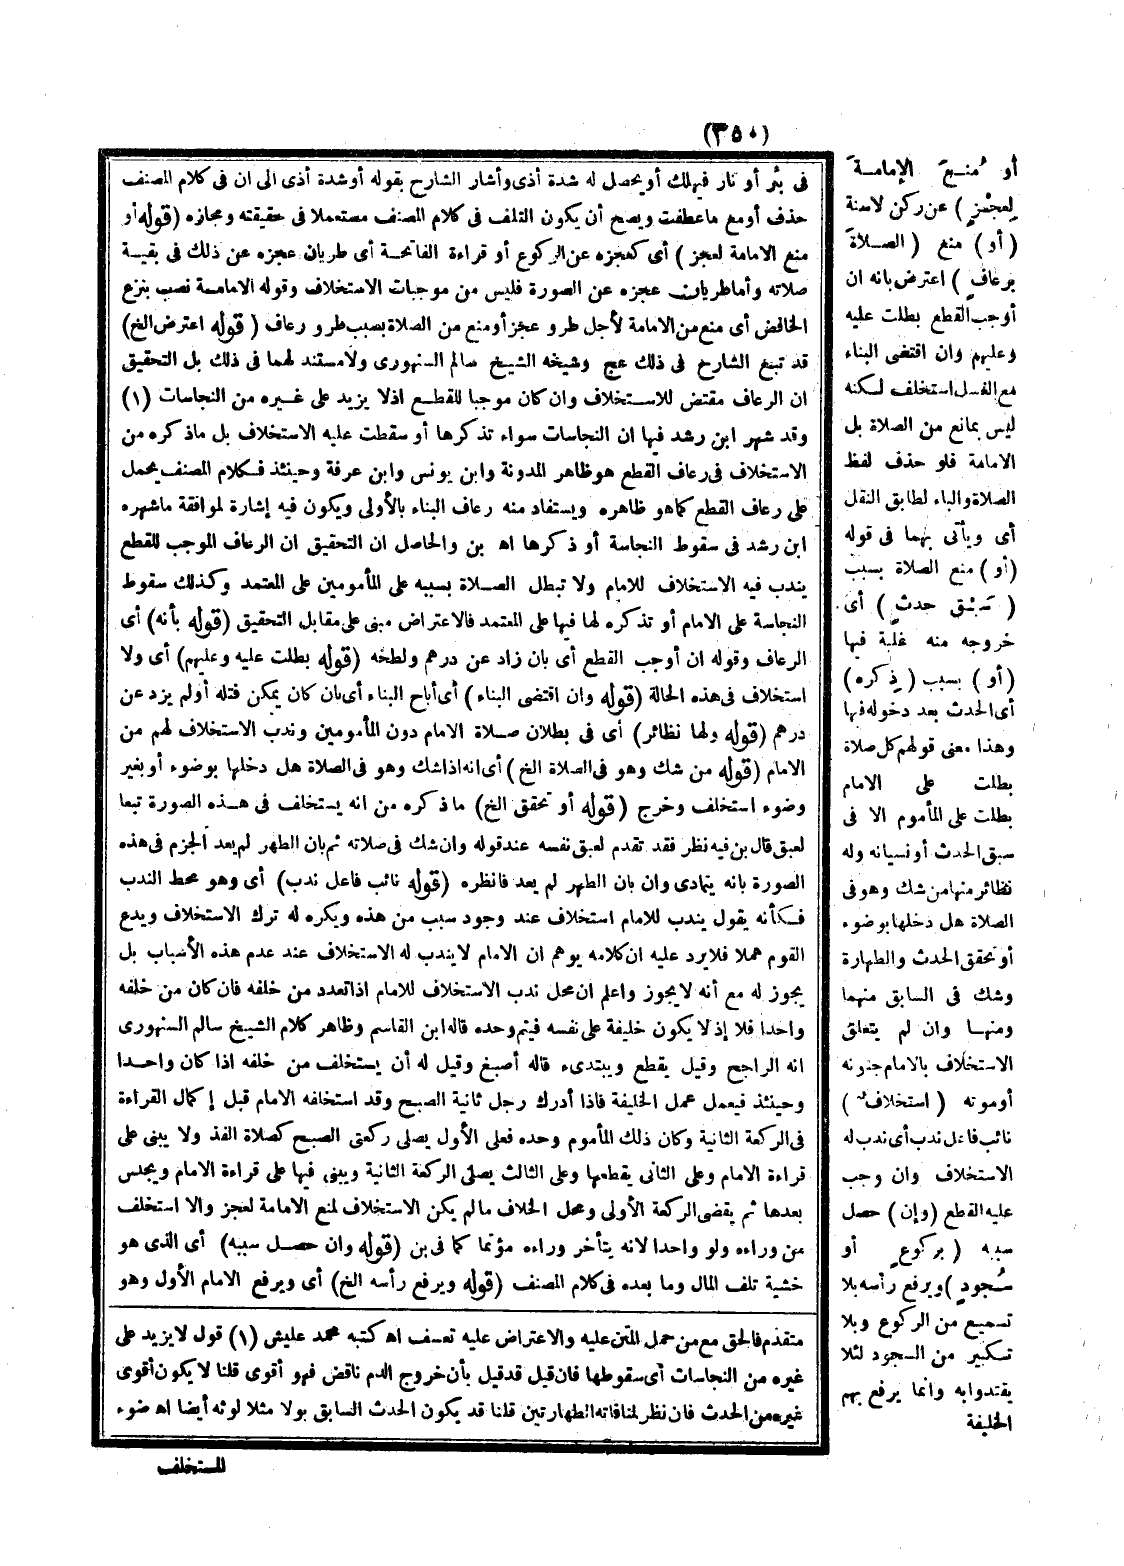 (٣٥٠)
أو مُنعَ الإمامةَ
لِعجْزٍ) عن ركن لاسنة
(أو) منع (الصلاةَ
برعافٍ) اعترض بانه ان
أوجب القطع بطلت عليه
وعليهم وان اقتضى البناء
مع الغسل استخلف لكنه
ليس بمانع من الصلاة بل
الامامة فلو حذف لفظ
الصلاة والباء لطابق النقل
أى ويأتى بهما فى قوله
(أو) منع الصلاة بسبب
(سَبْق حدثٍ) أى
خروجه منه غلبة فيها
(أو) بسبب (ذِكره)
أى الحدث بعد دخوله فيها
وهذا معنى قولهم كل صلاة
بطلت على الامام
بطلت على المأموم الا فى
سبق الحدث أو نسيانه وله
نظائر منها من شك وهو فى
الصلاة هل دخلها بوضوء
أو تحقق الحدث والطهارة
وشك فى السابق منهما
ومنها وان لم يتعلق
الاستخلاف بالامام جنونه
أو موته (استخلافٌ)
نائب فاعل ندب أى ندب له
الاستخلاف وان وجب
عليه القطع (وإن) حصل
سببه (بركوعٍ أو
سُجودٍ) ويرفع رأسه بلا
تسميع من الركوع وبلا
تكبير من السجود لئلا
يقتدوا به وانما يرفع بهم
الخليفة
فى بئر أو نار فيهلك أو يحصل له شدة أذى وأشار الشارح بقوله أو شدة أذى الى ان فى كلام المصنف
حذف أو مع ما عطفت ويصح أن يكون التلف فى كلام المصنف مستعملا فى حقيقته ومجازه (قوله أو
منع الامامة لعجز) أى كعجزه عن الركوع أو قراءة الفاتحة أى طريان عجزه عن ذلك فى بقية
صلاته وأما طريان عجزه عن الصورة فليس من موجبات الاستخلاف وقوله الامامة نصب بنزع
الخافض أى منع من الامامة لأجل طرو عجز أو منع من الصلاة بسبب طرو رعاف (قوله اعترض الخ)
قد تبع الشارح فى ذلك عج وشيخه الشيخ سالم السنهورى ولا مستند لهما فى ذلك بل التحقيق
ان الرعاف مقتض للاستخلاف وان كان موجبا للقطع اذ لا يزيد على غيره من النجاسات (١)
وقد شهر ابن رشد فيها ان النجاسات سواء تذكرها أو سقطت عليه الاستخلاف بل ما ذكره من
الاستخلاف فى رعاف القطع هو ظاهر المدونة وابن يونس وابن عرفة وحينئذ فكلام المصنف يحمل
على رعاف القطع كما هو ظاهره ويستفاد منه رعاف البناء بالأولى ويكون فيه إشارة لموافقة ما شهره
ابن رشد فى سقوط النجاسة أو ذكرها اه بن والحاصل ان التحقيق ان الرعاف الموجب للقطع
يندب فيه الاستخلاف للامام ولا تبطل الصلاة بسببه على المأمومين على المعتمد وكذلك سقوط
النجاسة على الامام أو تذكره لها فيها على المعتمد فالاعتراض مبنى على مقابل التحقيق (قوله بأنه) أى
الرعاف وقوله ان أوجب القطع أى بان زاد عن درهم ولطخه (قوله بطلت عليه وعليهم) أى ولا
استخلاف فى هذه الحالة (قوله وان اقتضى البناء) أى أباح البناء أى بان كان يمكن فتله أو لم يزد عن
درهم (قوله ولها نظائر) أى فى بطلان صلاة الامام دون المأمومين وندب الاستخلاف لهم من
الامام (قوله من شك وهو فى الصلاة الخ) أى انه اذا شك وهو فى الصلاة هل دخلها بوضوء أو بغير
وضوء استخلف وخرج (قوله أو تحقق الخ) ما ذكره من انه يستخلف فى هذه الصورة تبعا
لعبق قال بن فيه نظر فقد تقدم لعبق نفسه عند قوله وان شك فى صلاته ثم بان الطهر لم يعد الجزم فى هذه
الصورة بانه يتمادى وان بان الطهر لم يعد فانظره (قوله نائب فاعل ندب) أى وهو محط الندب
فكأنه يقول يندب للامام استخلاف عند وجود سبب من هذه ويكره له ترك الاستخلاف ويدع
القوم هملا فلا يرد عليه ان كلامه يوهم ان الامام لا يندب له الاستخلاف عند عدم هذه الأسباب بل
يجوز له مع أنه لا يجوز واعلم ان محل ندب الاستخلاف للامام اذا تعدد من خلفه فان كان من خلفه
واحدا فلا إذ لا يكون خليفة على نفسه فيتم وحده قاله ابن القاسم وظاهر كلام الشيخ سالم السنهورى
انه الراجح وقيل يقطع ويبتدىء قاله أصبغ وقيل له أن يستخلف من خلفه اذا كان واحدا
وحينئذ فيعمل عمل الخليفة فاذا أدرك رجل ثانية الصبح وقد استخلفه الامام قبل إكمال القراءة
فى الركعة الثانية وكان ذلك المأموم وحده فعلى الأول يصلى ركعتى الصبح كصلاة الفذ ولا يبنى على
قراءة الامام وعلى الثانى يقطعها وعلى الثالث يصلى الركعة الثانية ويبنى فيها على قراءة الامام ويجلس
بعدها ثم يقضى الركعة الأولى ومحل الخلاف ما لم يكن الاستخلاف لمنع الامامة لعجز والا استخلف
من وراءه ولو واحدا لانه يتأخر وراءه مؤتما كما فى بن (قوله وان حصل سببه) أى الذى هو
خشية تلف المال وما بعده فى كلام المصنف (قوله ويرفع رأسه الخ) أى ويرفع الامام الأول وهو
متقدم فالحق مع من حمل المتن عليه والاعتراض عليه تعسف اه كتبه محمد عليش (١) قول لا يزيد على
غيره من النجاسات أى سقوطها فان قيل قد قيل بأن خروج الدم ناقض فهو أقوى قلنا لا يكون أقوى
غيره من الحدث فان نظر لمنافاته الطهارتين قلنا قد يكون الحدث السابق بولا مثلا لوثه أيضا اه ضوء
للستخلف